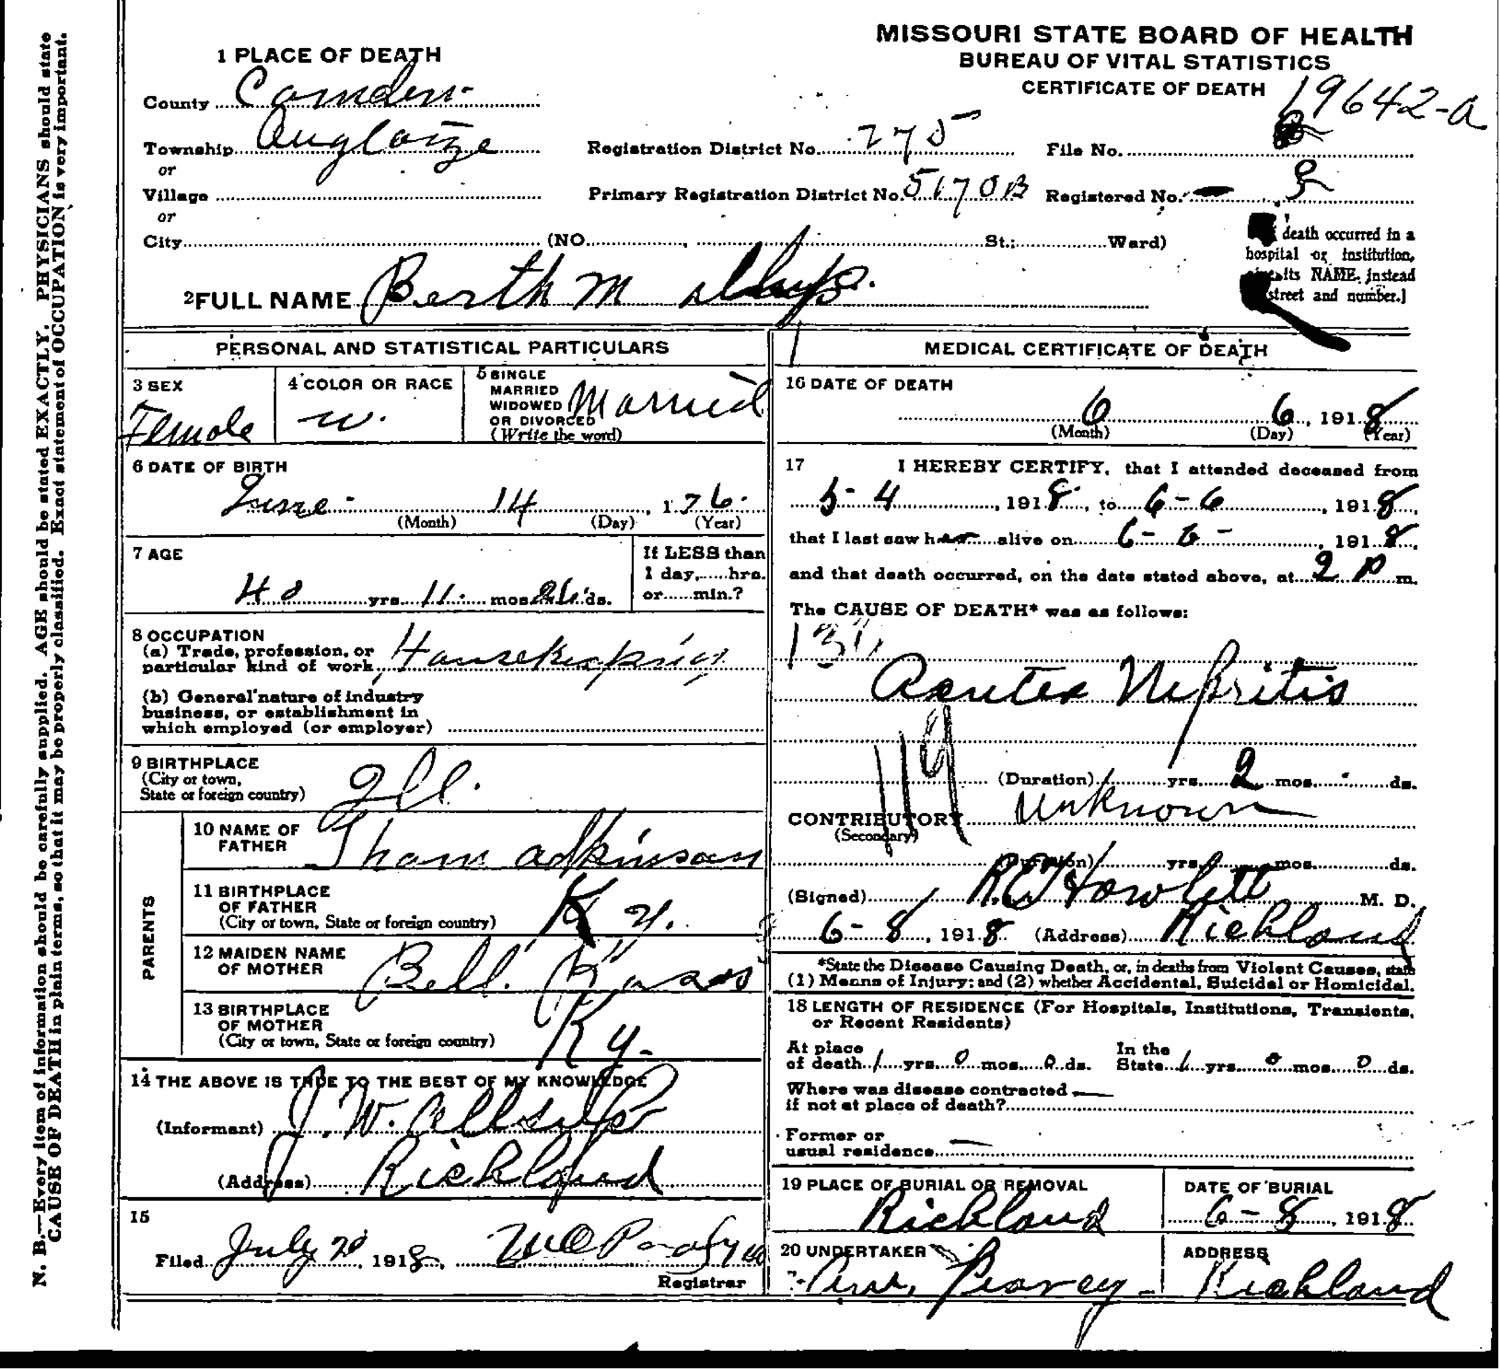 N. B.—Every item of information should be carefully supplied. AGE should be stated EXACTLY. PHYSICIANS should state
CAUSE OF DEATH in plain terms, so that it may be properly classified. Exact statement of OCCUPATION is very important.
MISSOURI STATE BOARD OF HEALTH
BUREAU OF VITAL STATISTICS
CERTIFICATE OF DEATH
19642-a
1 PLACE OF DEATH
County Camden
Township Auglaize
or
Village
or
City (NO. St.; Ward)
Registration District No. 275
File No.
Primary Registration District No. 5170B
Registered No.
death occurred in a
hospital or institution,
its NAME, instead
street and number.]
2 FULL NAME Berth M
PERSONAL AND STATISTICAL PARTICULARS
3 SEX
Female
4 COLOR OR RACE
W.
5 SINGLE
MARRIED
WIDOWED
OR DIVORCED
(Write the word)
Married
6 DATE OF BIRTH
June 14, 1 76
(Month) (Day) (Year)
7 AGE
yrs. 11 mos. ds.
If LESS than
1 day, hrs.
or min.?
8 OCCUPATION
(a) Trade, profession, or
particular kind of work Housekeeping
(b) General nature of industry
business, or establishment in
which employed (or employer)
9 BIRTHPLACE
(City or town,
State or foreign country)
Ill.
PARENTS
10 NAME OF
FATHER
Thom Adkinson
11 BIRTHPLACE
OF FATHER
(City or town, State or foreign country)
Ky.
12 MAIDEN NAME
OF MOTHER
Bell
13 BIRTHPLACE
OF MOTHER
(City or town, State or foreign country)
Ky.
14 THE ABOVE IS TRUE TO THE BEST OF MY KNOWLEDGE
(Informant) J. W. Allsup
(Address) Richland
15
Filed July 20, 1918,
Registrar
MEDICAL CERTIFICATE OF DEATH
16 DATE OF DEATH
6 6, 1918
(Month) (Day) (Year)
17 I HEREBY CERTIFY, that I attended deceased from
5-4, 1918, to 6-6, 1918,
that I last saw her alive on 6-6-, 1918,
and that death occurred, on the date stated above, at 2 P m.
The CAUSE OF DEATH* was as follows:
Acute Nefritis
119
(Duration) yrs. 2 mos. ds.
CONTRIBUTORY Unknown
(Secondary)
(Duration) yrs. mos. ds.
(Signed) R. E. Howlett M. D.
6-8, 1918 (Address) Richland
*State the Disease Causing Death, or, in deaths from Violent Causes, state
(1) Means of Injury; and (2) whether Accidental, Suicidal or Homicidal.
18 LENGTH OF RESIDENCE (For Hospitals, Institutions, Transients,
or Recent Residents)
At place
of death 1 yrs. 0 mos. 0 ds.
In the
State 1 yrs. 0 mos. 0 ds.
Where was disease contracted
if not at place of death?
Former or
usual residence
19 PLACE OF BURIAL OR REMOVAL
Richland
DATE OF BURIAL
6-8, 1918
20 UNDERTAKER
ADDRESS
Richland